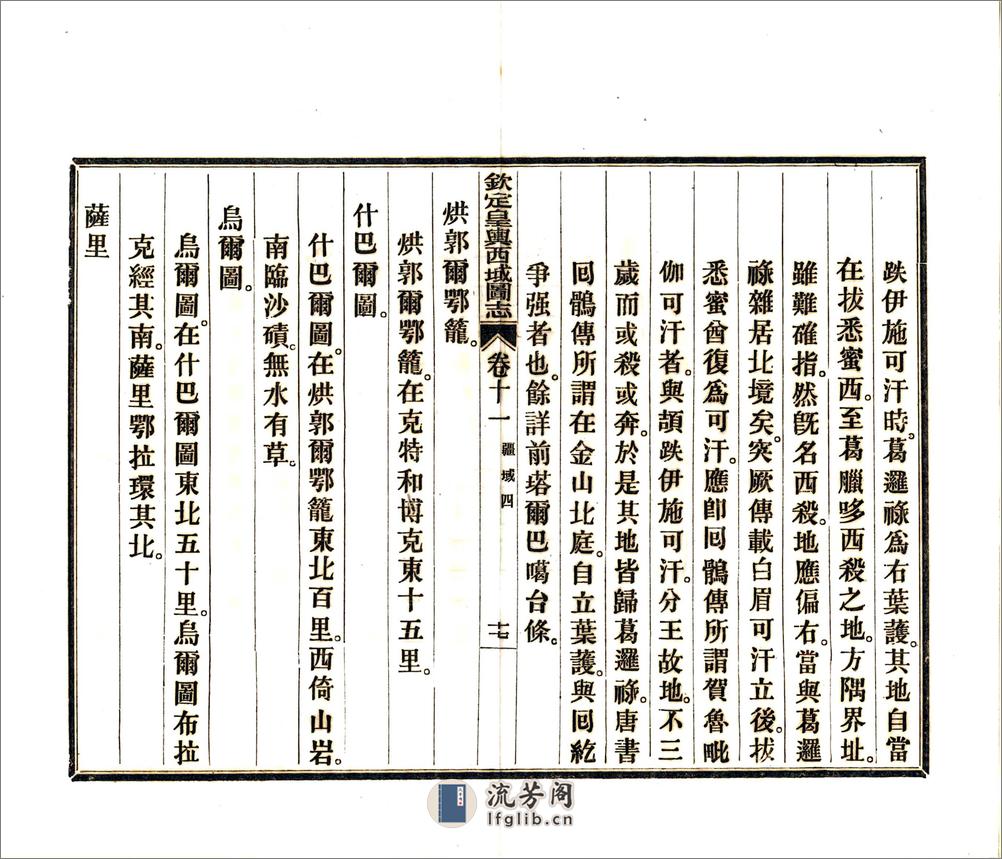 跌伊施可汗時。葛邏祿爲右葉護。其地自當
在拔悉蜜西。至葛臘哆西殺之地。方隅界址。
雖難確指。然旣名西殺。地應偏右。當與葛邏
祿雜居北境矣。突厥傳載白眉可汗立後。拔
悉蜜酋復爲可汗。應卽囘鶻傳所謂賀魯毗
伽可汗者。與頡跌伊施可汗。分王故地。不三
歲而或殺或奔。於是其地皆歸葛邏祿。唐書
囘鶻傳所謂在金山北庭。自立葉護。與囘紇
爭强者也。餘詳前塔爾巴噶台條。
欽定皇輿西域圖志 卷十一 疆域四 十七
烘郭爾鄂籠。
烘郭爾鄂籠。在克特和博克東十五里。
什巴爾圖。
什巴爾圖。在烘郭爾鄂籠東北百里。西倚山岩。
南臨沙磧。無水有草。
烏爾圖。
烏爾圖。在什巴爾圖東北五十里。烏爾圖布拉
克經其南。薩里鄂拉環其北。
薩里
流芳阁
lfglib.cn